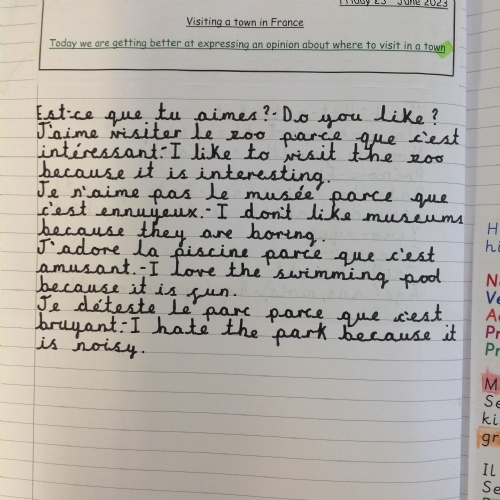 Friday 23rd June 2023
Visiting a town in France
Today we are getting better at expressing an opinion about where to visit in a town
Est-ce que tu aimes?- Do you like?
J'aime visiter le zoo parce que c'est
intéressant.-I like to visit the zoo
because it is interesting.
Je n'aime pas le musée parce que
c'est ennuyeux.-I don't like museums
because they are boring.
J'adore la piscine parce que c'est
amusant.-I love the swimming pool
because it is fun.
Je déteste le parc parce que c'est
bruyant.-I hate the park because it
is noisy.